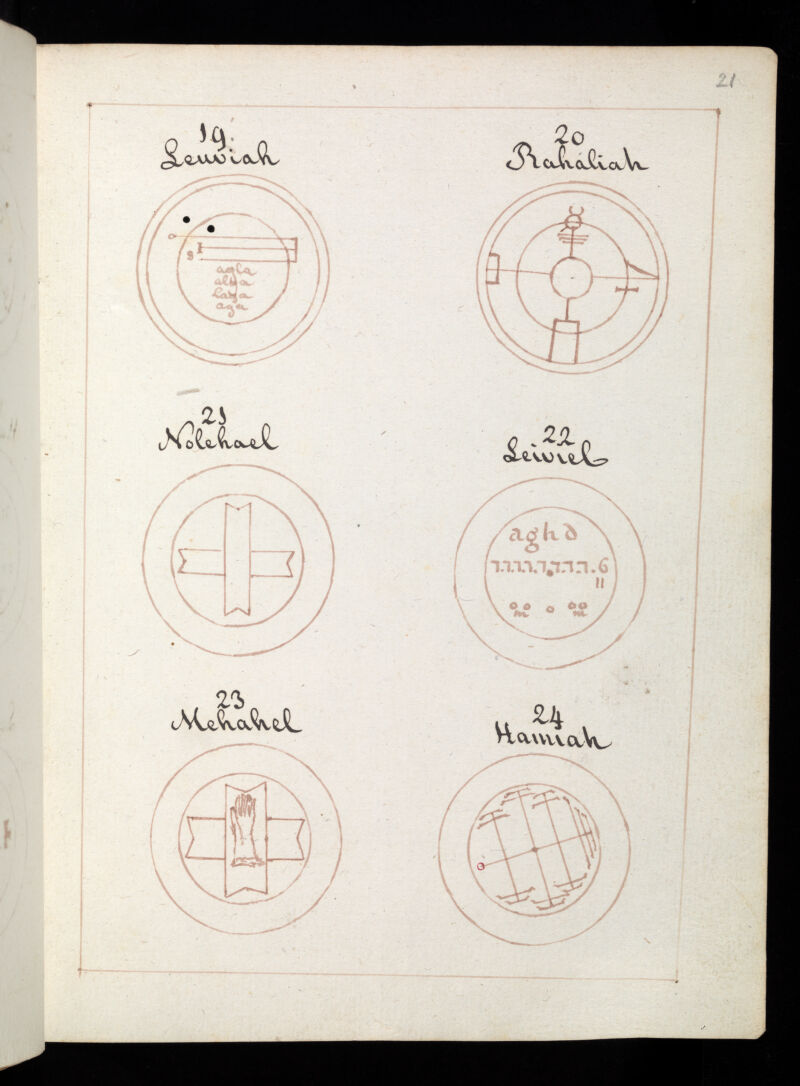 21
19
Leuviah
8
agla
alpa
laya
aga
20
Rahaliah
21
Nolehael
22
Leiviel
aghd
6
11
oo o oo
m m
23
Mehahel
24
Hamiah